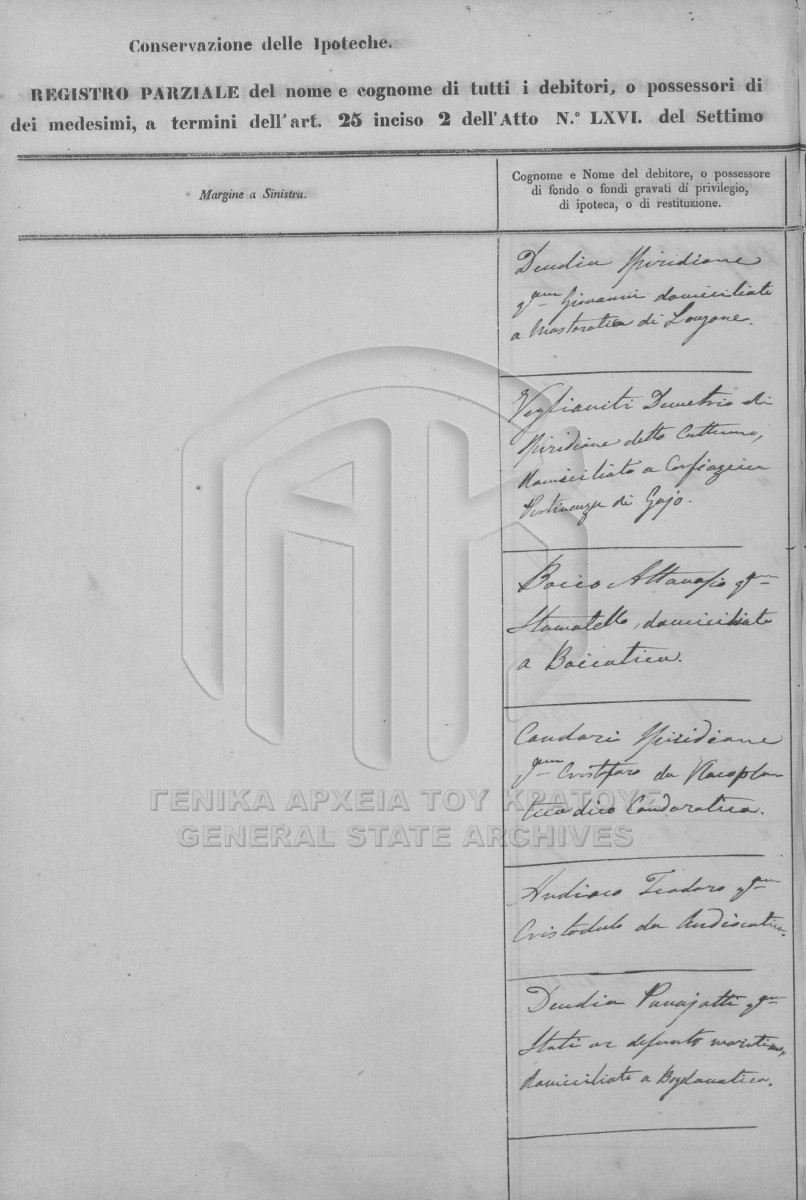 Conservazione delle Ipoteche.
REGISTRO PARZIALE del nome e cognome di tutti i debitori, o possessori di
dei medesimi, a termini dell'art. 25 inciso 2 dell'Atto N.° LXVI. del Settimo
Margine a Sinistra.
Cognome e Nome del debitore, o possessore
di fondo o fondi gravati di privilegio,
di ipoteca, o di restituzione.
Dendia Spiridione
qm Giovanni domiciliato
a Mastoratica di
Veglianiti Demetrio di
Spiridione detto
domiciliato a
Pertinenza di Gajo.
Bocco Attanasio qm
Stamatello, domiciliato
a Boccatica.
Condari Spiridione
qm Cristofaro da
dico Condaratica.
Andioco Teodoro qm
Cristodulo da
Dendia Panajotti qm
Stati defunto
domiciliato a Bogdanatica.
ΓΕΝΙΚΑ ΑΡΧΕΙΑ ΤΟΥ ΚΡΑΤΟΥΣ
GENERAL STATE ARCHIVES